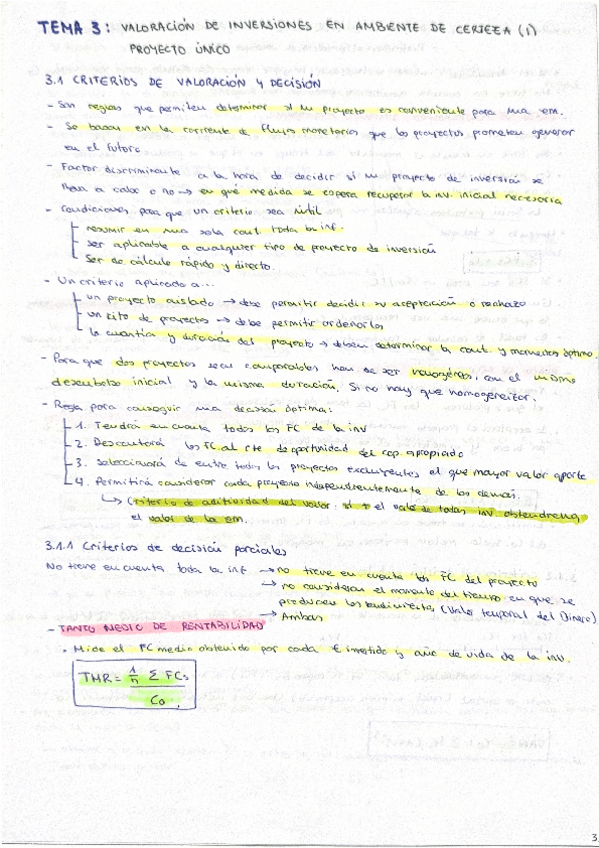 TEMA 3: VALORACIÓN DE INVERSIONES EN AMBIENTE DE CERTEZA (1)
PROYECTO ÚNICO
3.1 CRITERIOS DE VALORACIÓN Y DECISIÓN
- Son reglas que permiten determinar si un proyecto es conveniente para una em.
- Se basan en la corriente de flujos monetarios que los proyectos prometen generar
en el futuro
- Factor discriminante a la hora de decidir si un proyecto de inversión se
lleva a cabo o no → en qué medida se espera recuperar la inv. inicial necesaria
- Condiciones para que un criterio sea útil
resumir en una sola cant. toda la inf.
ser aplicable a cualquier tipo de proyecto de inversión
Ser de cálculo rápido y directo.
- Un criterio aplicado a...
un proyecto aislado → debe permitir decidir su aceptación o rechazo
un cjto de proyectos → debe permitir ordenarlos
la cuantía y duración del proyecto → deben determinar la cant. y momentos óptimo.
- Para que dos proyectos sean comparables han de ser homogéneos, con el mismo
desembolso inicial y la misma duración. Si no hay que homogeneizar.
- Regla para conseguir una decisión óptima:
1. Tendrá en cuenta todos los FC de la inv
2. Descontará los FC al cte de oportunidad del cap. apropiado
3. Seleccionará de entre todos los proyectos excluyentes el que mayor valor aporte
4. Permitirá considerar cada proyecto independientemente de los demás
↳ Criterio de aditividad del valor: si el valor de todas inv. obtendremos
el valor de la em.
3.1.1 Criterios de decisión parciales
No tiene en cuenta toda la inf → no tiene en cuenta los FC del proyecto
→ no consideran el momento del tiempo en que se
producen los rendimientos (Valor temporal del Dinero)
→ Ambas
- TANTO MEDIO DE RENTABILIDAD
• Mide el FC medio obtenido por cada € invertido y año de vida de la inv.
TMR = 1/n Σ FCs
C0
3